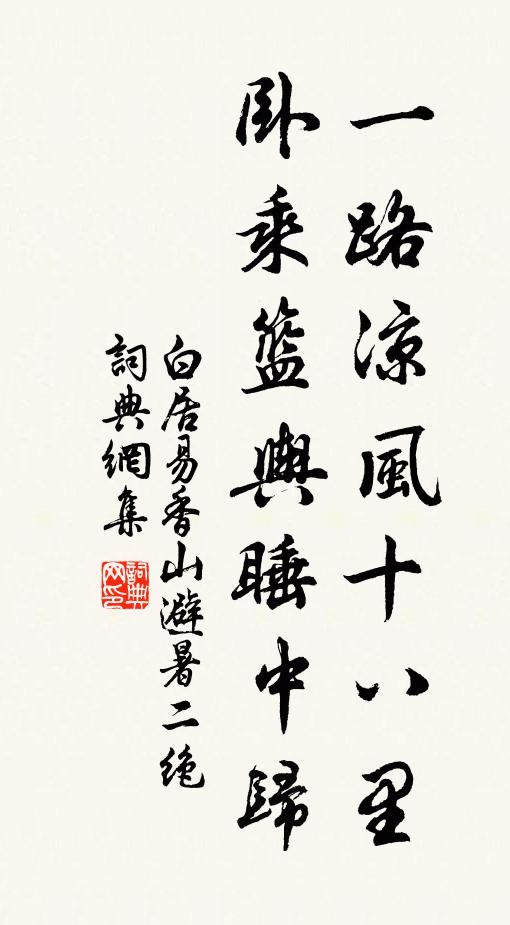 一路凉風十八里
卧乘籃輿睡中歸
白居易香山避暑二絶
詞典網集
詞典网印